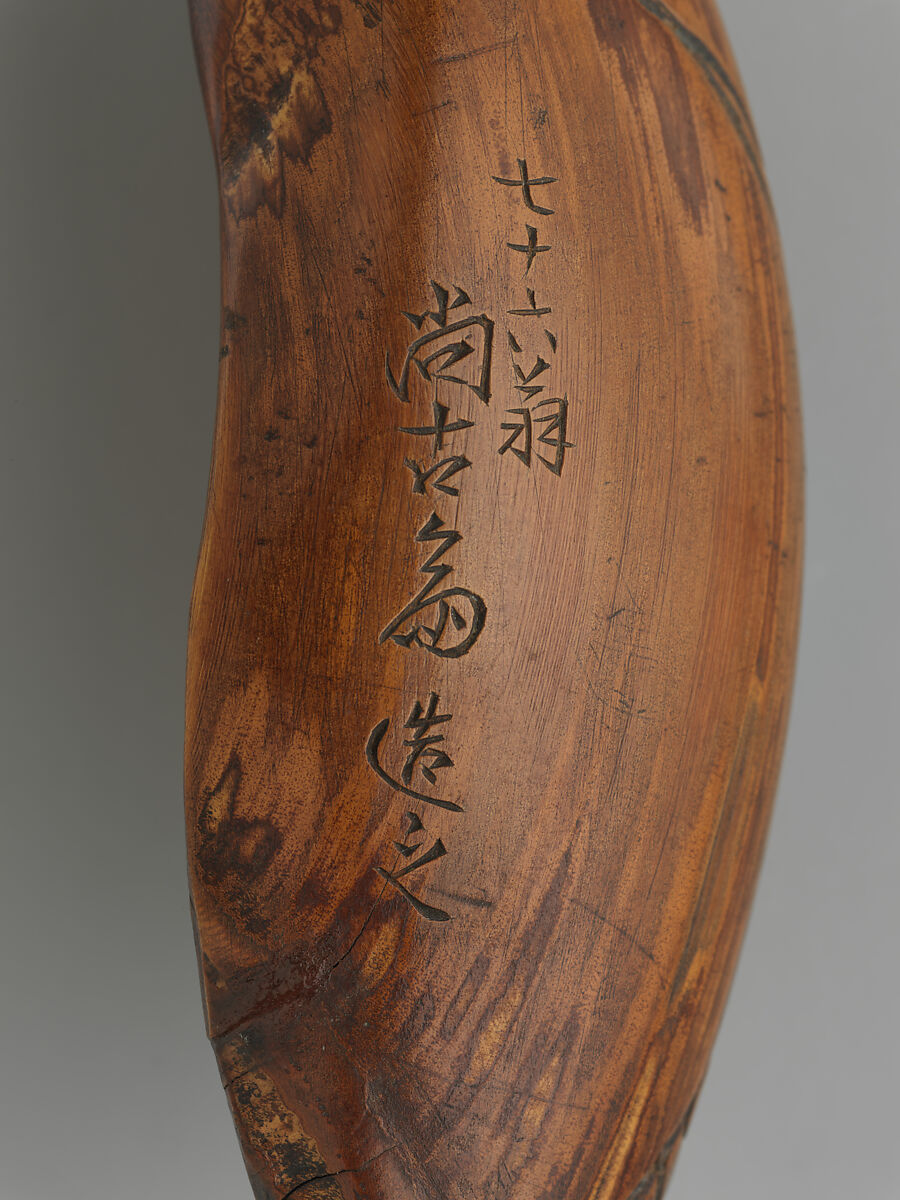 七十六翁
尚古齋 造之